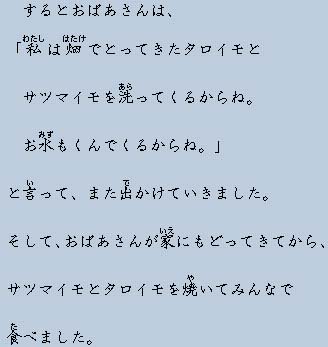 するとおばあさんは、
「私は畑でとってきたタロイモと
サツマイモを洗ってくるからね。
お水もくんでくるからね。」
と言って、また出かけていきました。
そして、おばあさんが家にもどってきてから、
サツマイモとタロイモを焼いてみんなで
食べました。